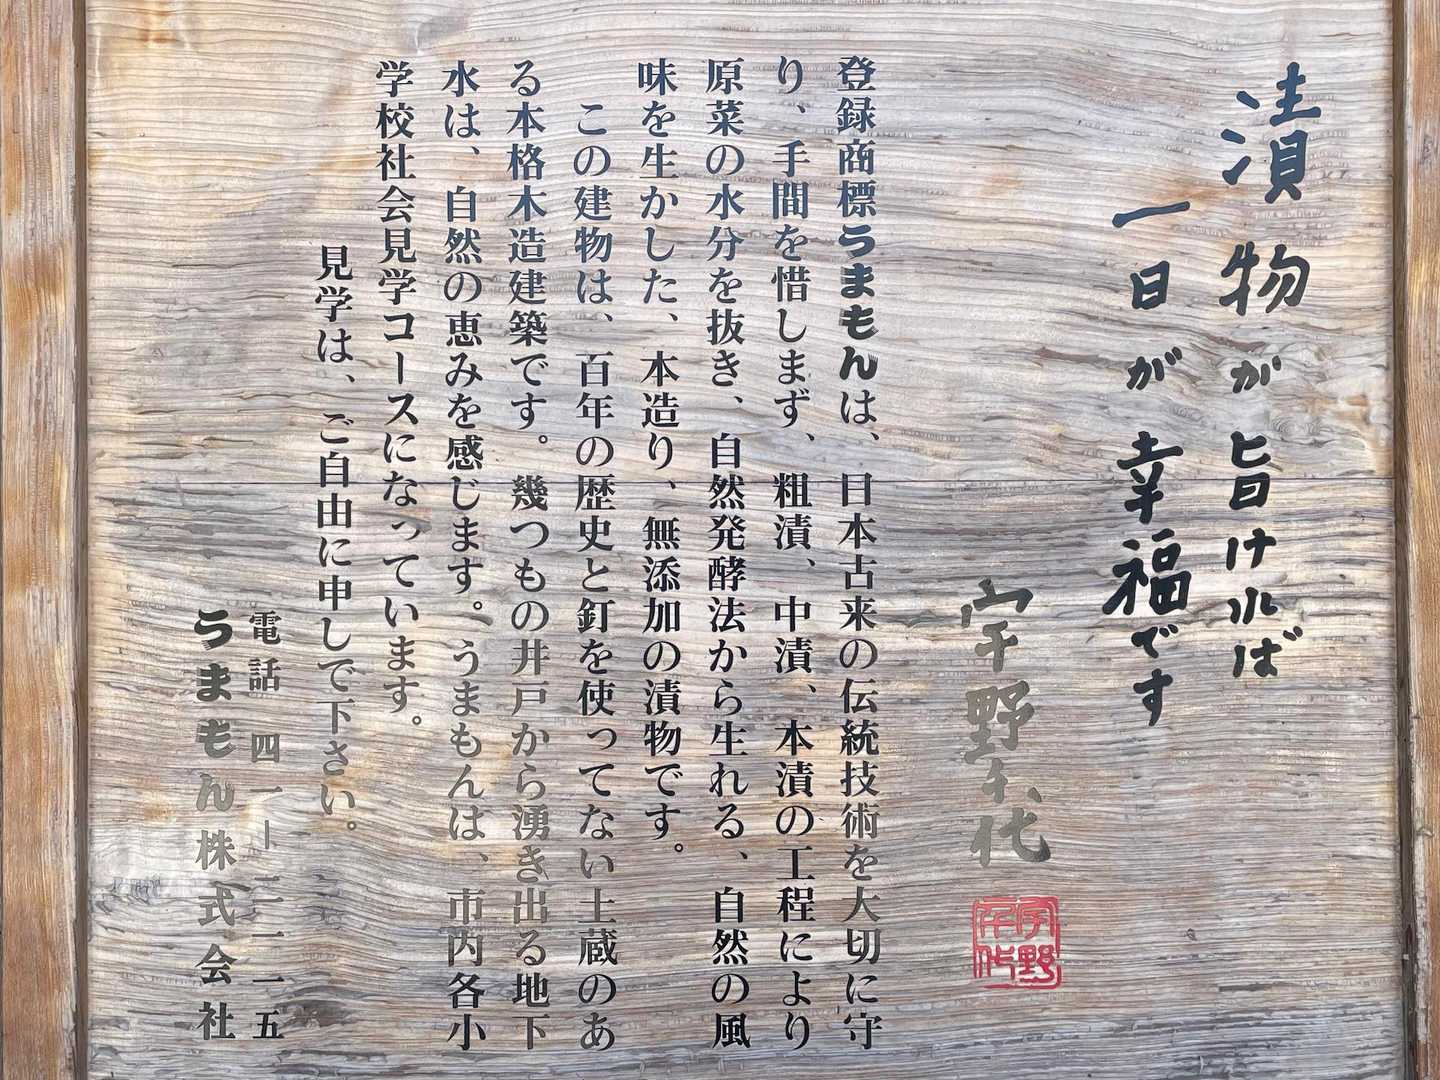 漬物が旨ければ
一日が幸福です
宇野千代
宇野
千代
登録商標うまもんは、日本古来の伝統技術を大切に守
り、手間を惜しまず、粗漬、中漬、本漬の工程により
原菜の水分を抜き、自然発酵法から生れる、自然の風
味を生かした、本造り、無添加の漬物です。
この建物は、百年の歴史と釘を使ってない土蔵のあ
る本格木造建築です。幾つもの井戸から湧き出る地下
水は、自然の恵みを感じます。うまもんは、市内各小
学校社会見学コースになっています。
見学は、ご自由に申しで下さい。
電話四一-二一一五
うまもん株式会社